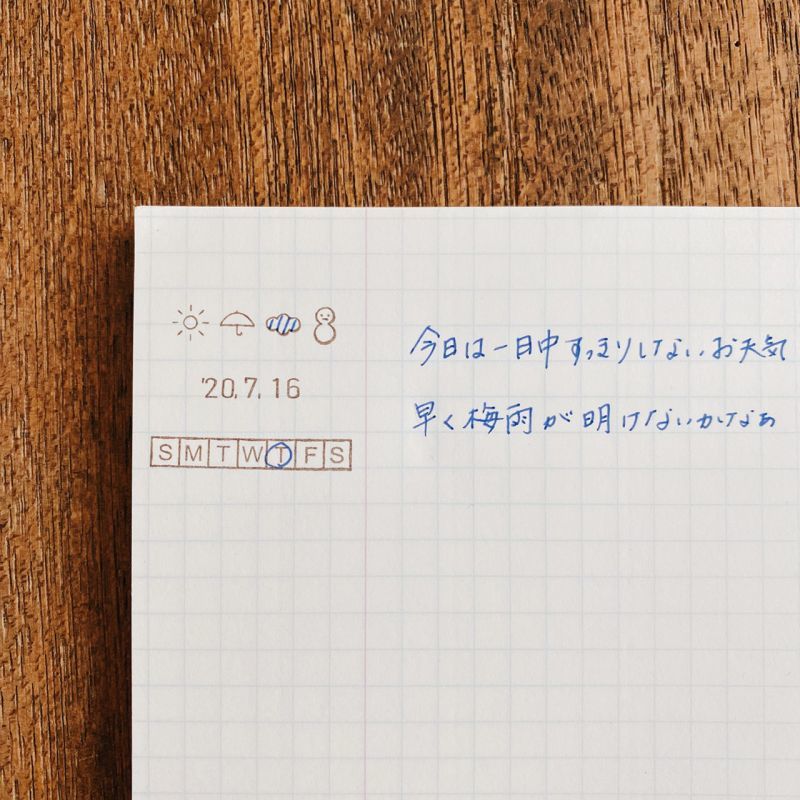 '20.7.16
S M T W T F S
今日は一日中すっきりしないお天気
早く梅雨が明けないかなぁ